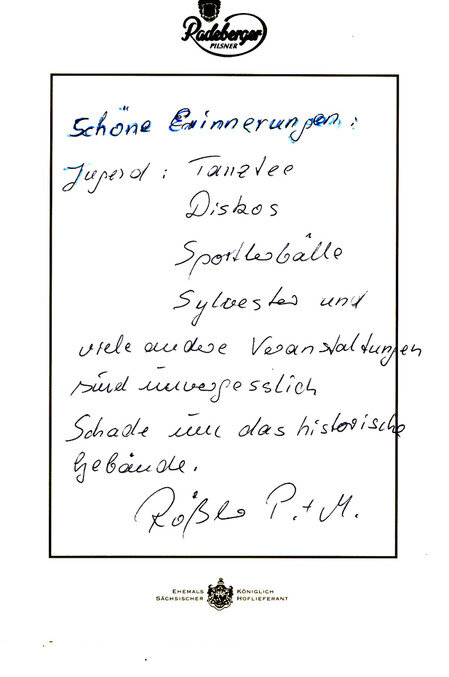 Radeberger
PILSNER
Schöne Erinnerungen:
Jugend: Tanztee
Diskos
Sportlerbälle
Sylvester und
viele andere Veranstaltungen
sind unvergesslich
Schade um das historische
Gebäude.
Rößler P. + M.
EHEMALS KÖNIGLICH
SÄCHSISCHER HOFLIEFERANT